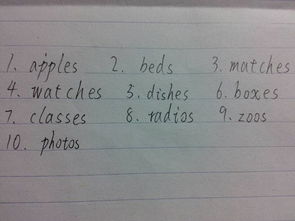 1. apples 2. beds 3. matches
4. watches 5. dishes 6. boxes
7. classes 8. radios 9. zoos
10. photos